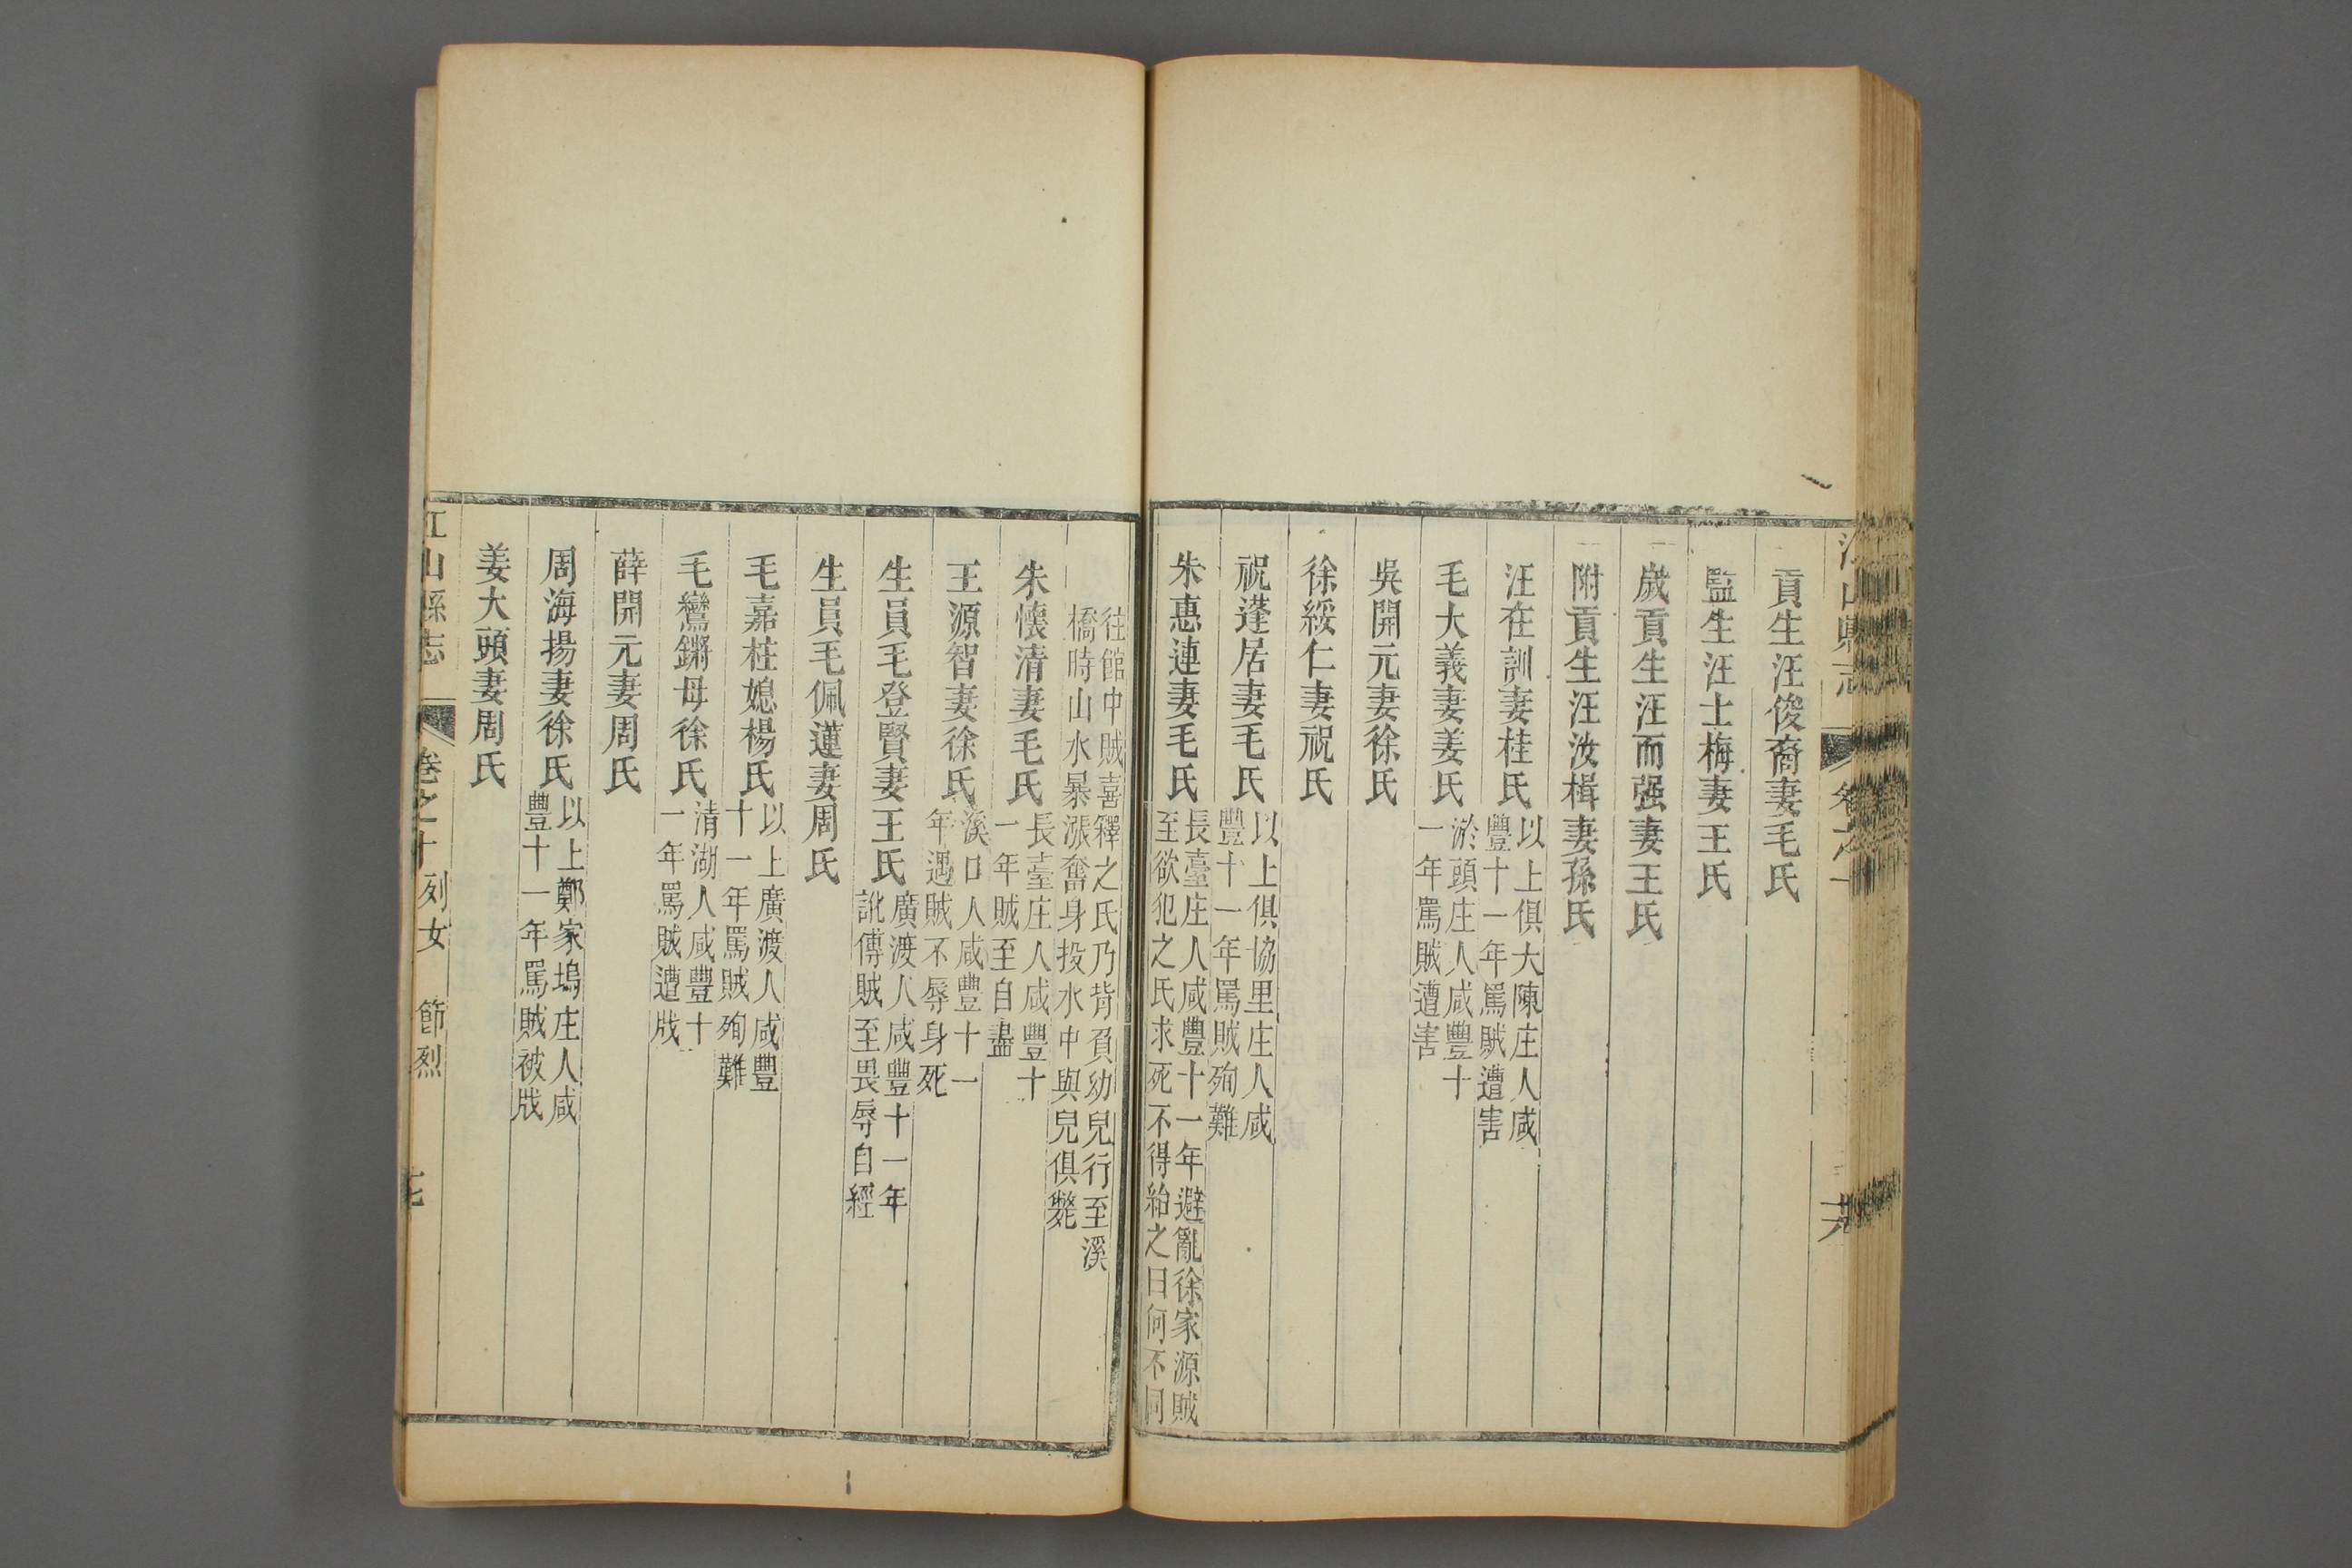 貢生汪俊裔妻毛氏
監生汪士梅妻王氏
歲貢生汪而强妻王氏
附貢生汪汝楫妻孫氏
汪在訓妻桂氏
以上俱大陳庄人咸
豐十一年罵賊遭害
毛大義妻姜氏
淤頭庄人咸豐十
一年罵賊遭害
吳開元妻徐氏
徐綏仁妻祝氏
祝蓬居妻毛氏
以上俱協里庄人咸
豐十一年罵賊殉難
朱惠連妻毛氏
長臺庄人咸豐十一年避亂徐家源賊
至欲犯之氏求死不得紿之曰何不同
往館中賊喜釋之氏乃背負幼兒行至溪
橋時山水暴漲奮身投水中與兒俱斃
朱懷清妻毛氏
長臺庄人咸豐十
一年賊至自盡
王源智妻徐氏
溪口人咸豐十一
年遇賊不辱身死
生員毛登賢妻王氏
廣渡人咸豐十一年
訛傳賊至畏辱自經
生員毛佩蓮妻周氏
毛嘉柱媳楊氏
以上廣渡人咸豐
十一年罵賊殉難
毛鸞鏘母徐氏
清湖人咸豐十
一年罵賊遭戕
薛開元妻周氏
周海揚妻徐氏
以上鄭家塢庄人咸
豐十一年罵賊被戕
姜大頭妻周氏
江山縣志
卷之十 列女 節烈